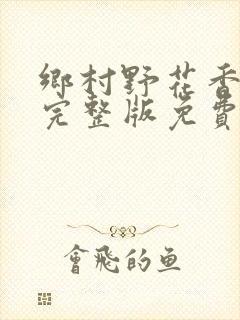 鄉村野花香
完整版免費
會飛的鱼